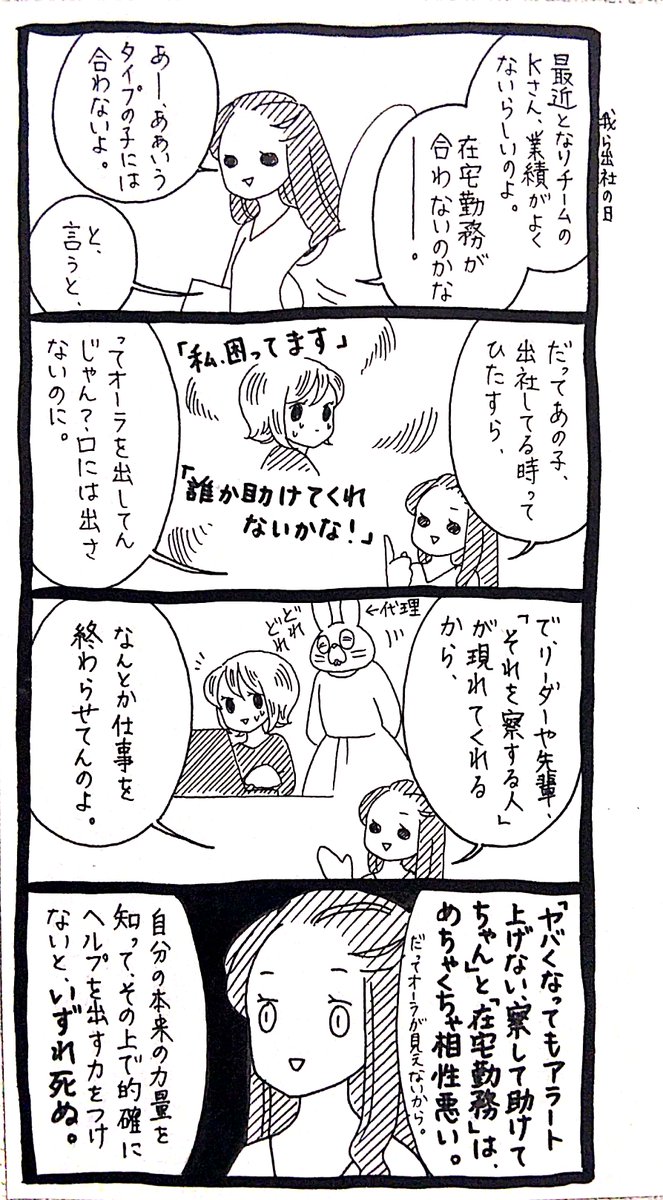 我ら出社の日
最近となりチームの
Kさん、業績がよく
ないらしいのよ。
在宅勤務が
合わないのかな
ーー。
あー、ああいう
タイプの子には
合わないよ。
と、
言うと、
だってあの子、
出社してる時って
ひたすら、
「私、困ってます」
「誰か助けてくれ
ないかな！」
ってオーラを出してん
じゃん？口には出さ
ないのに。
で、リーダーや先輩、
「それを察する人」
が現れてくれる
から、
←代理
どれ
どれ
なんとか仕事を
終わらせてんのよ。
「ヤバくなってもアラート
上げない、察して助けて
ちゃん」と「在宅勤務」は、
めちゃくちゃ相性悪い。
だってオーラが見えないから。
自分の本来の力量を
知って、その上で的確に
ヘルプを出す力をつけ
ないと、いずれ死ぬ。